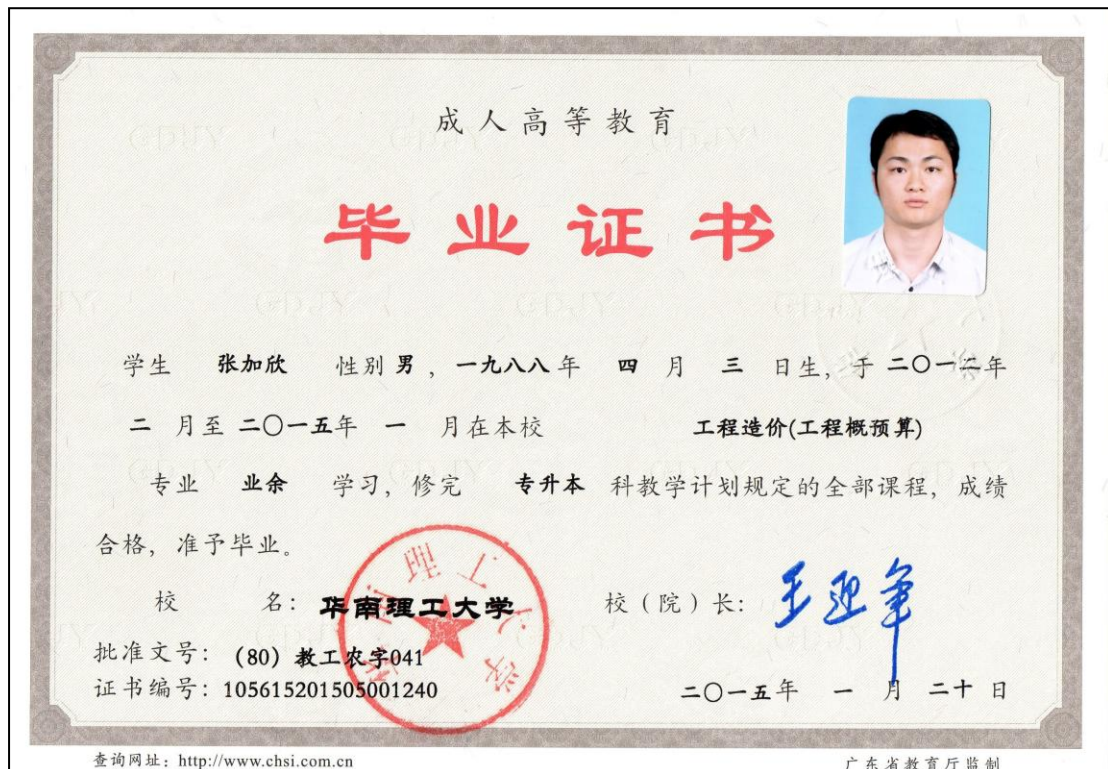 成人高等教育
毕业证书
学生 张加欣 性别 男，一九八八年 四 月 三 日生，于 二〇一二年
二 月至 二〇一五年 一 月在本校 工程造价(工程概预算)
专业 业余 学习，修完 专升本 科教学计划规定的全部课程，成绩
合格，准予毕业。
校 名： 华南理工大学 校（院）长： 王迎军
华南理工大学
批准文号：（80）教工农字041
证书编号：105615201505001240 二〇一五年 一 月 二十 日
查询网址：http://www.chsi.com.cn 广东省教育厅监制
GDJY